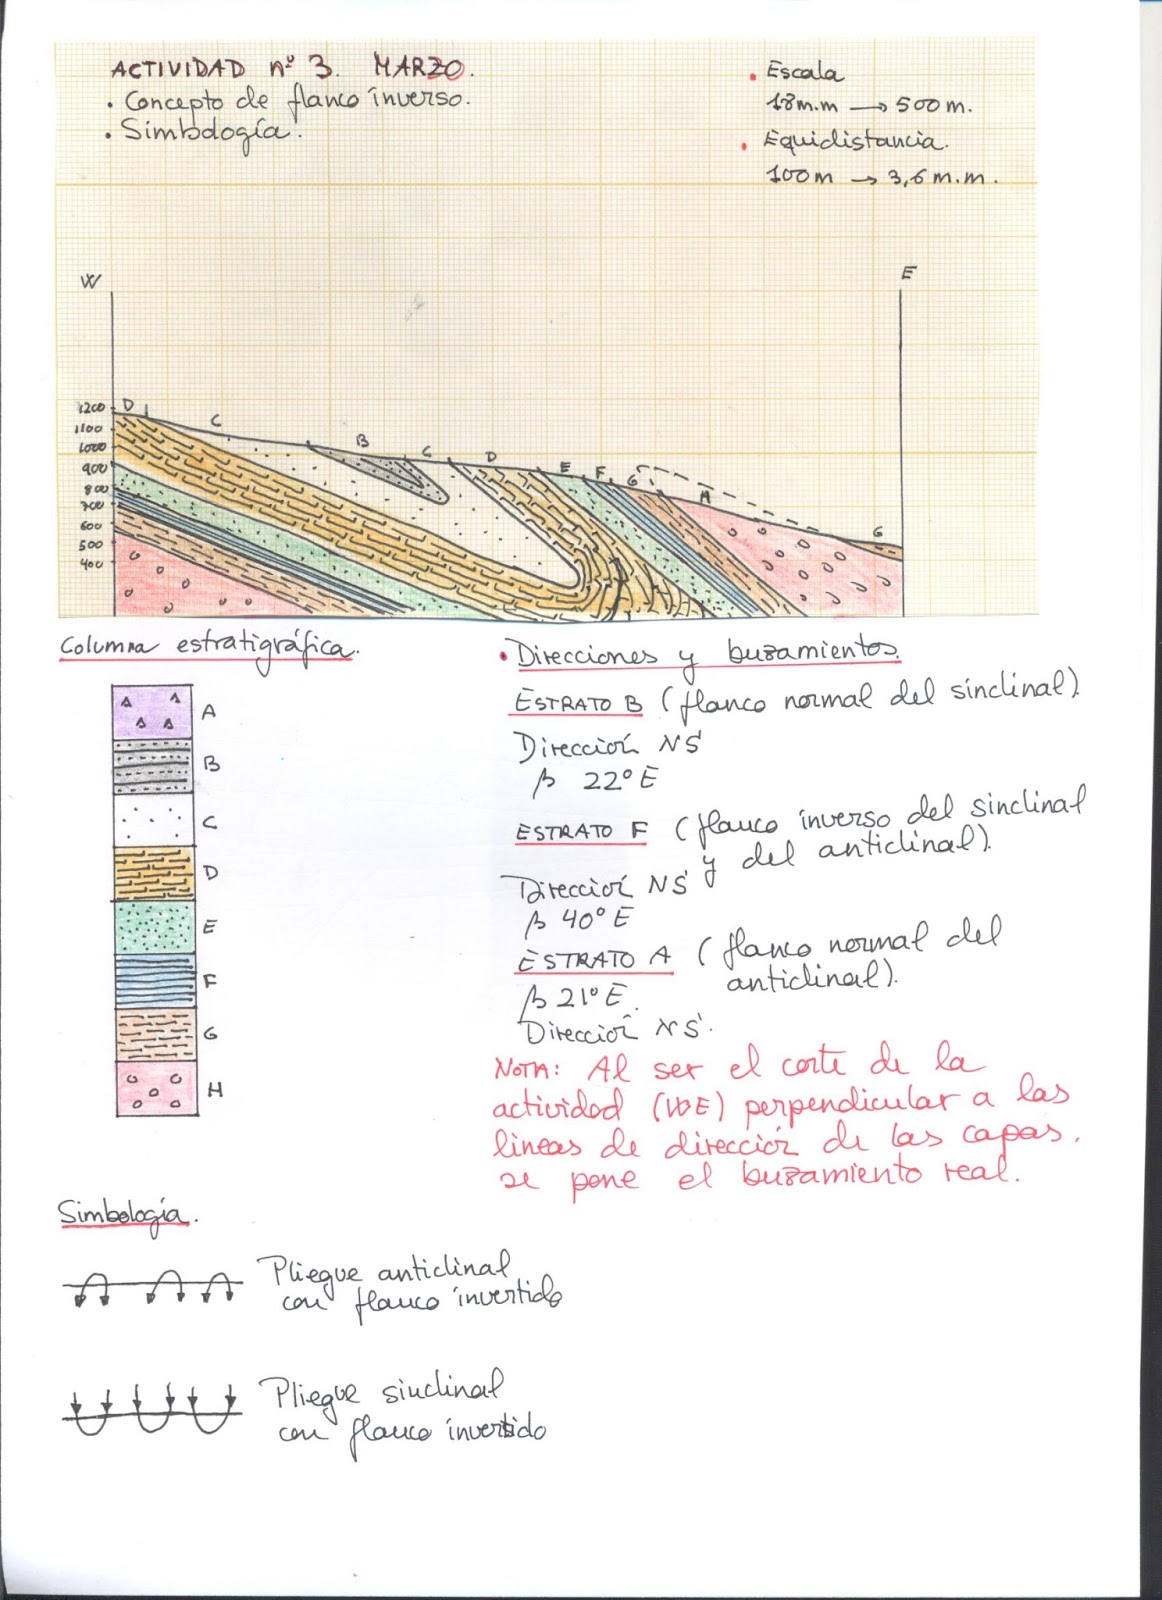 ACTIVIDAD nº 3. MARZO.
• Concepto de flanco inverso.
• Simbología.
• Escala
18m.m → 500 m.
• Equidistancia.
100m → 3,6 m.m.
W
E
D
C
B
C
D
E
F
G
H
G
1200
1100
1000
900
800
700
600
500
400
Columna estratigráfica.
A
B
C
D
E
F
G
H
• Direcciones y buzamientos.
ESTRATO B (flanco normal del sinclinal).
Dirección NS
β 22º E
ESTRATO F (flanco inverso del sinclinal
y del anticlinal).
Dirección NS
β 40º E
ESTRATO A (flanco normal del
anticlinal).
β 21º E.
Dirección NS.
NOTA: Al ser el corte de la
actividad (WE) perpendicular a las
lineas de dirección de las capas.
se pone el buzamiento real.
Simbología.
Pliegue anticlinal
con flanco invertido
Pliegue sinclinal
con flanco invertido